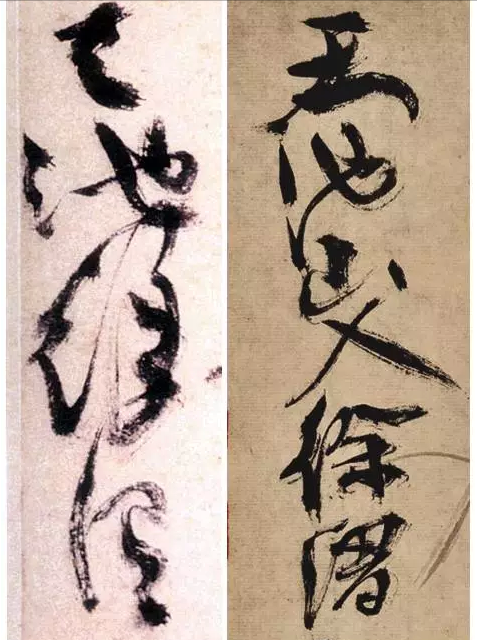 天池徐渭
天池山人徐渭